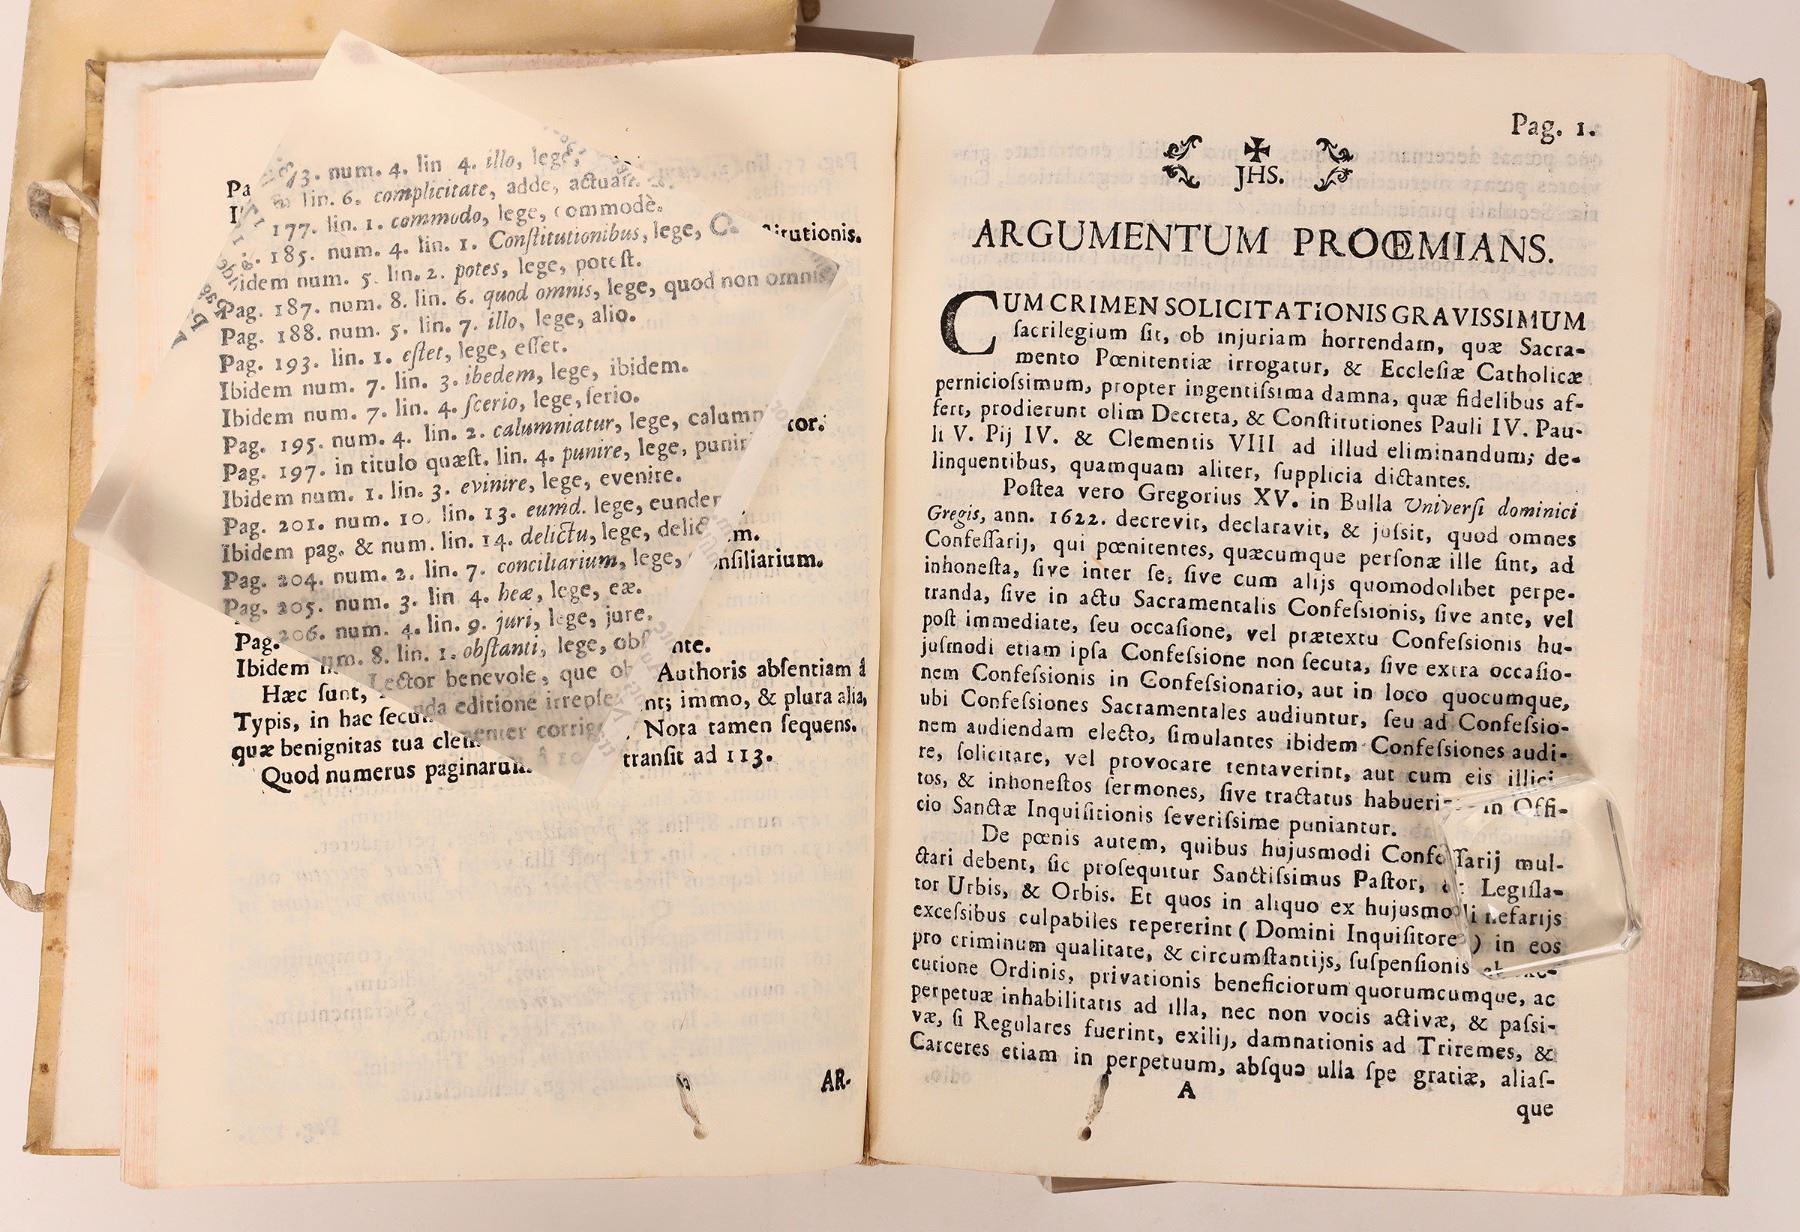 Pa 173. num. 4. lin 4. illo, lege,
lin. 6. complicitate, adde, actuam
177. lin. 1. commodo, lege, commodè.
185. num. 4. lin. 1. Conſtitutionibus, lege, Conſtitutionis.
Ibidem num. 5. lin. 2. potes, lege, poteſt.
Pag. 187. num. 8. lin. 6. quod omnis, lege, quod non omnis
Pag. 188. num. 5. lin. 7. illo, lege, alio.
Pag. 193. lin. 1. eſtet, lege, eſſet.
Ibidem num. 7. lin. 3. ibedem, lege, ibidem.
Ibidem num. 7. lin. 4. ſcerio, lege, ſerio.
Pag. 195. num. 4. lin. 2. calumniatur, lege, calumniator.
Pag. 197. in titulo quæſt. lin. 4. punire, lege, puniri
Ibidem num. 1. lin. 3. evinire, lege, evenire.
Pag. 201. num. 10. lin. 13. eumd. lege, eunder
Ibidem pag. & num. lin. 14. delictu, lege, delictum.
Pag. 204. num. 2. lin. 7. conciliarium, lege, conſiliarium.
Pag. 205. num. 3. lin 4. heæ, lege, eæ.
Pag. 206. num. 4. lin. 9. juri, lege, jure.
Ibidem num. 8. lin. 1. obſtanti, lege, obſtante.
Hæc ſunt, Lector benevole, que ob Authoris abſentiam â
Typis, in hac ſecunda editione irrepſerunt; immo, & plura alia,
quæ benignitas tua clementer corriget. Nota tamen ſequens.
Quod numerus paginarum â 10 tranſit ad 113.
AR-
Pag. 1.
JHS.
ARGUMENTUM PROŒMIANS.
CUM CRIMEN SOLICITATIONIS GRAVISSIMUM
ſacrilegium ſit, ob injuriam horrendam, quæ Sacra-
mento Pœnitentiæ irrogatur, & Eccleſiæ Catholicæ
pernicioſsimum, propter ingentiſsima damna, quæ fidelibus af-
fert, prodierunt olim Decreta, & Conſtitutiones Pauli IV. Pau-
li V. Pij IV. & Clementis VIII ad illud eliminandum; de-
linquentibus, quamquam aliter, ſupplicia dictantes.
Poſtea vero Gregorius XV. in Bulla Univerſi dominici
Gregis, ann. 1622. decrevit, declaravit, & juſsit, quod omnes
Confeſſarij, qui pœnitentes, quæcumque perſonæ ille ſint, ad
inhoneſta, ſive inter ſe, ſive cum alijs quomodolibet perpe-
tranda, ſive in actu Sacramentalis Confeſsionis, ſive ante, vel
poſt immediate, ſeu occaſione, vel prætextu Confeſsionis hu-
juſmodi etiam ipſa Confeſsione non ſecuta, ſive extra occaſio-
nem Confeſsionis in Confeſsionario, aut in loco quocumque,
ubi Confeſsiones Sacramentales audiuntur, ſeu ad Confeſsio-
nem audiendam electo, ſimulantes ibidem Confeſsiones audi-
re, ſolicitare, vel provocare tentaverint, aut cum eis illici-
tos, & inhoneſtos ſermones, ſive tractatus habuerint in Offi-
cio Sanctæ Inquiſitionis ſeveriſsime puniantur.
De pœnis autem, quibus hujuſmodi Confeſſarij mul-
ctari debent, ſic proſequitur Sanctiſsimus Paſtor, & Legiſla-
tor Urbis, & Orbis. Et quos in aliquo ex hujuſmodi nefarijs
exceſsibus culpabiles repererint ( Domini Inquiſitores ) in eos
pro criminum qualitate, & circumſtantijs, ſuſpenſionis ab exe-
cutione Ordinis, privationis beneficiorum quorumcumque, ac
perpetuæ inhabilitatis ad illa, nec non vocis activæ, & paſsi-
væ, ſi Regulares fuerint, exilij, damnationis ad Triremes, &
Carceres etiam in perpetuum, abſque ulla ſpe gratiæ, aliaſ-
A
que